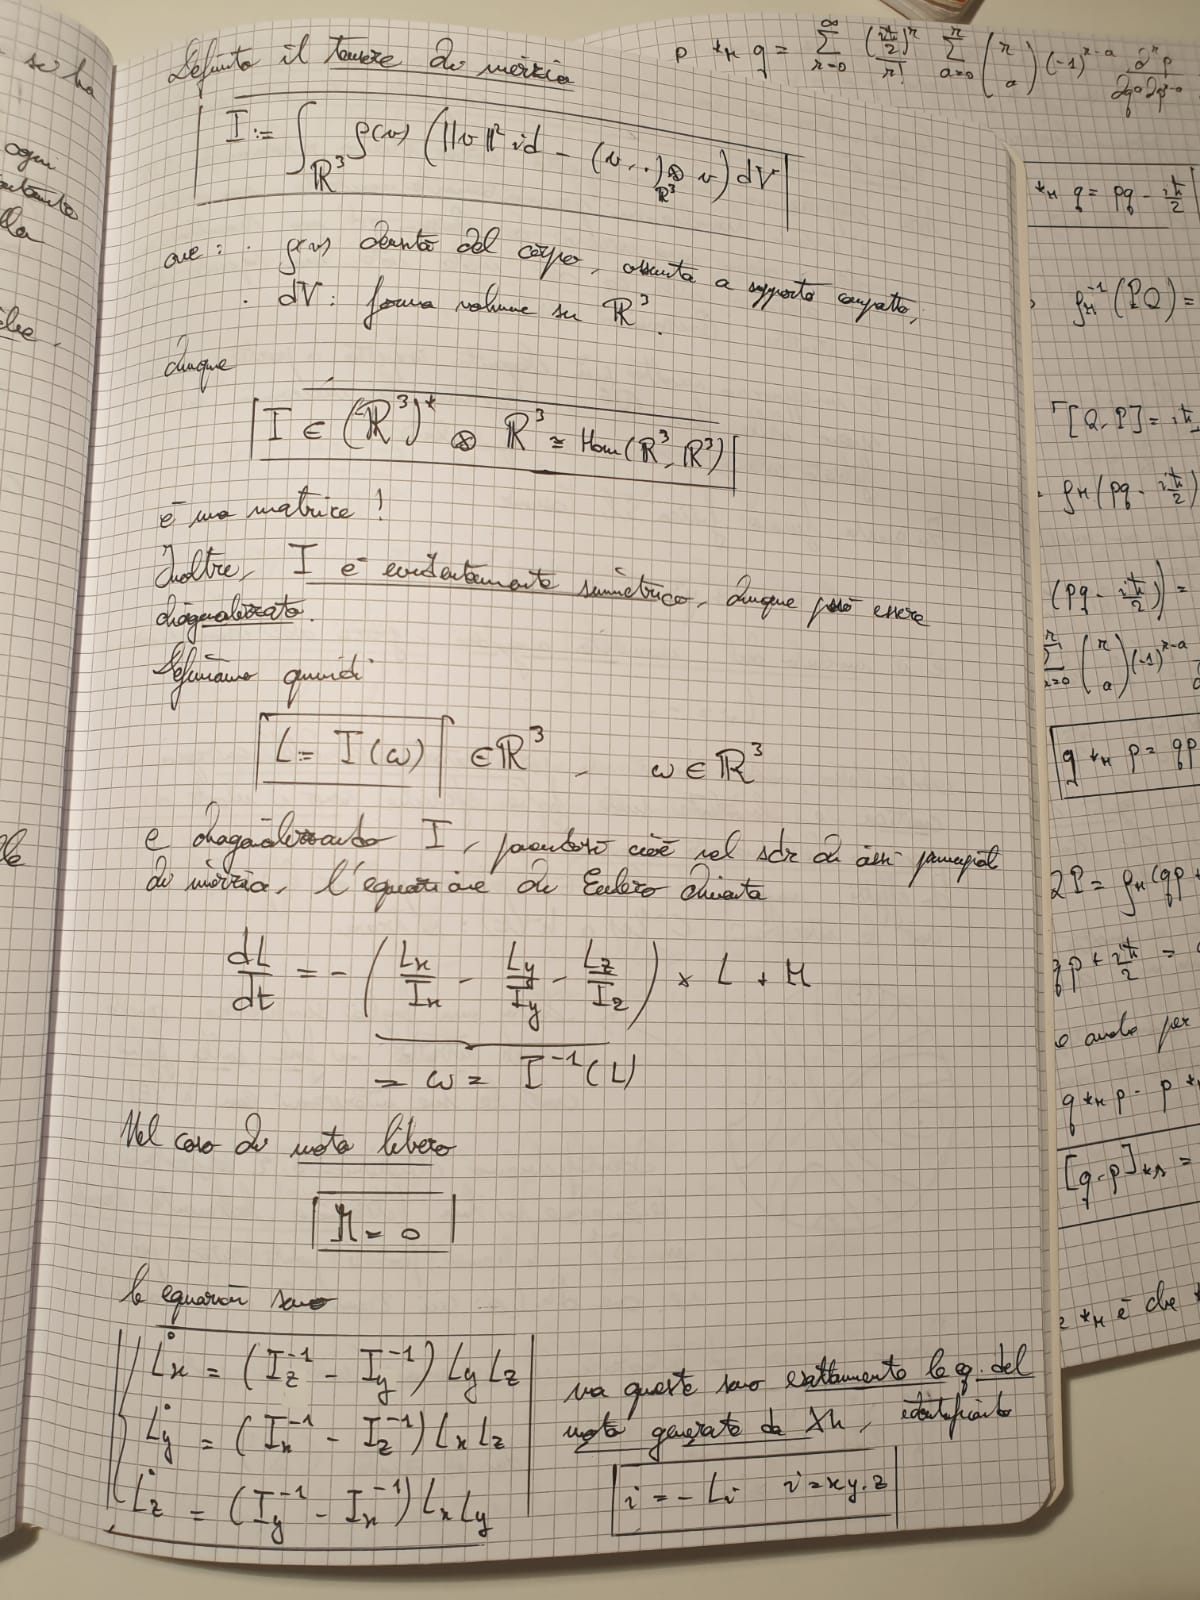 Definito il tensore di inerzia
I := ∫_{ℝ³} ρ(v) (‖v‖² id − (v, ·) ⊗_{ℝ³} v) dV
ove: · ρ(v) densità del corpo, assunta a supporto compatto,
· dV: forma volume su ℝ³.
dunque
I ∈ (ℝ³)* ⊗ ℝ³ ≅ Hom(ℝ³, ℝ³)
è una matrice!
Inoltre, I è evidentemente simmetrico, dunque può essere
diagonalizzato.
Definiamo quindi
L := I(ω) ∈ ℝ³, ω ∈ ℝ³
e diagonalizzando I, ponendosi cioè nel sdr di assi principali
di inerzia, l'equazione di Eulero diventa
dL/dt = − (Lx/Ix , Ly/Iy , Lz/Iz) × L + M
= ω = I⁻¹(L)
Nel caso di moto libero
M = 0
le equazioni sono
L̇x = (Iz⁻¹ − Iy⁻¹) Ly Lz
L̇y = (Ix⁻¹ − Iz⁻¹) Lx Lz
L̇z = (Iy⁻¹ − Ix⁻¹) Lx Ly
ma queste sono esattamente le eq. del
moto generate da Xh, identificando
i = − Li i = x, y, z
se ha
ogni
lla
p *_M q = Σ_{r=0}^{∞} (iħ/2)^r / r! Σ_{a=0}^{r} (r a) (−1)^{r−a} ∂^r p
*_M q = pq − iħ/2
ρ_M⁻¹(PQ) =
[Q, P] = iħ
ρ_M(pq − iħ/2)
(pq − iħ/2) =
(r a) (−1)^{r−a}
q *_M p = qp
QP = ρ_M(qp +
qp + iħ/2 =
e anche per
q *_M p − p *
[q, p]_{*M} =
*_M è che *